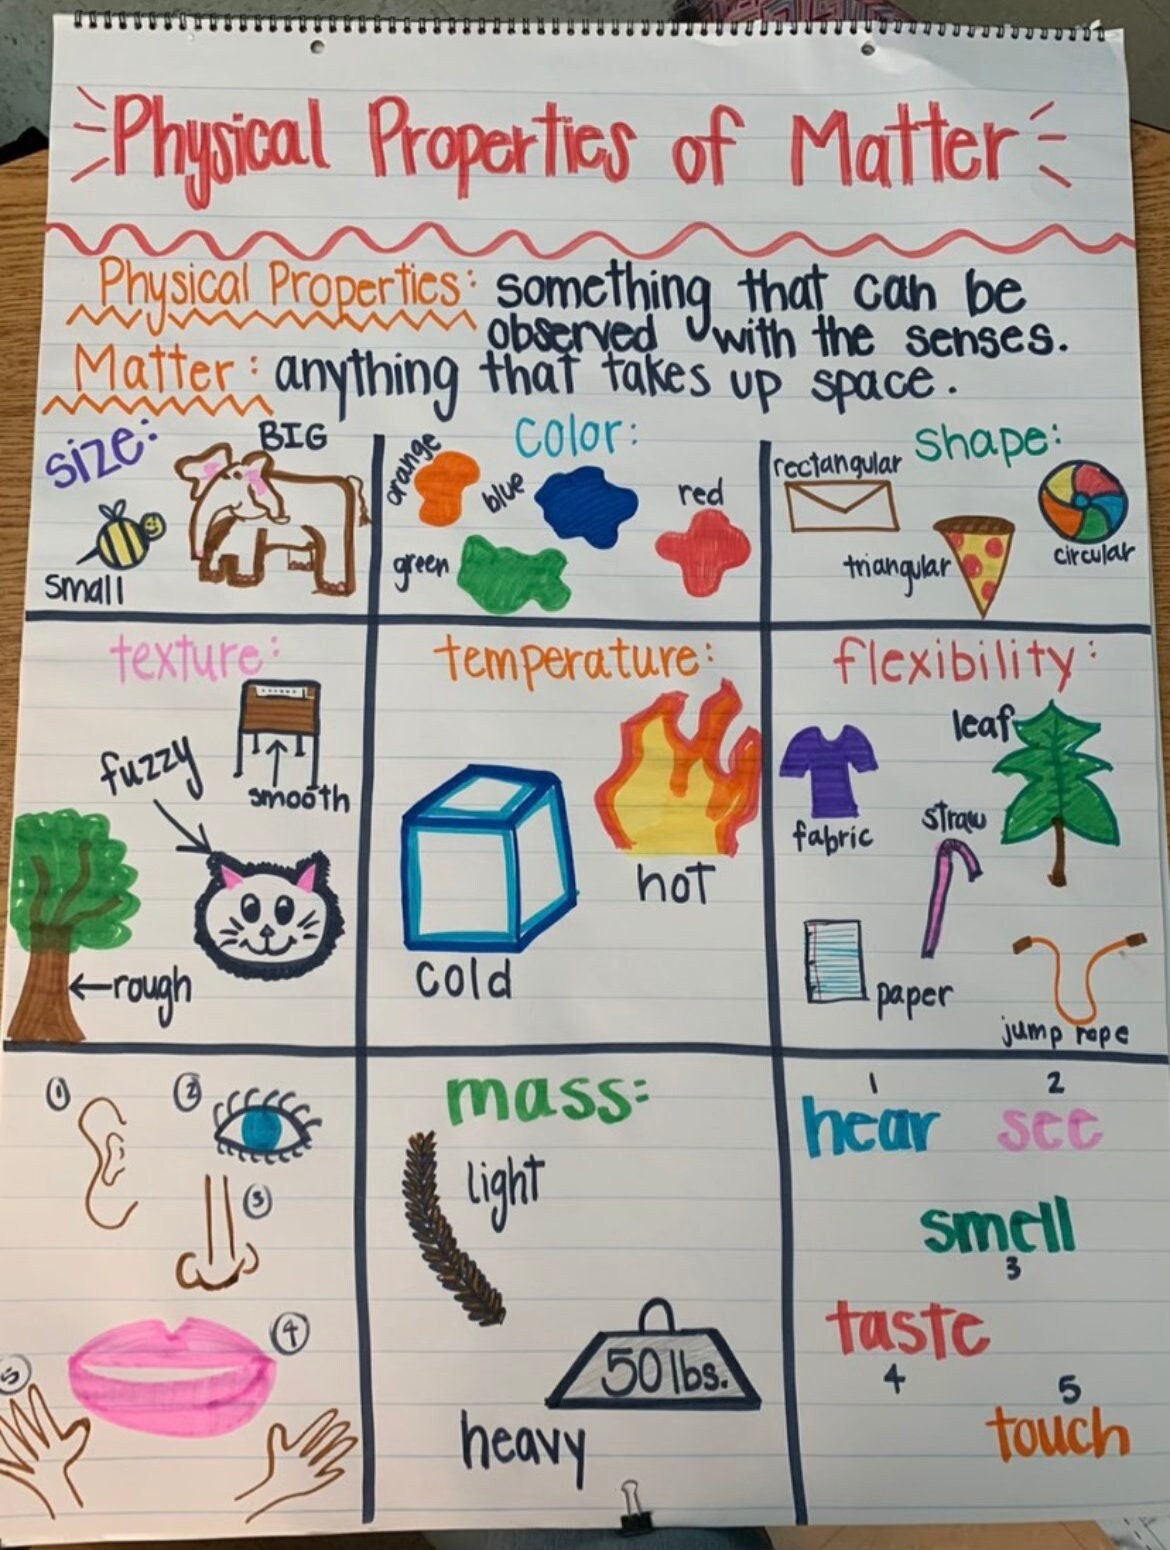 Physical Properties of Matter
Physical Properties: something that can be
observed with the senses.
Matter: anything that takes up space.
size:
BIG
small
color:
orange
blue
red
green
shape:
rectangular
triangular
circular
texture:
smooth
fuzzy
rough
temperature:
hot
cold
flexibility:
leaf
fabric
straw
paper
jump rope
1
2
3
4
5
mass:
light
50 lbs.
heavy
1 2
hear see
smell
3
taste
4
5
touch